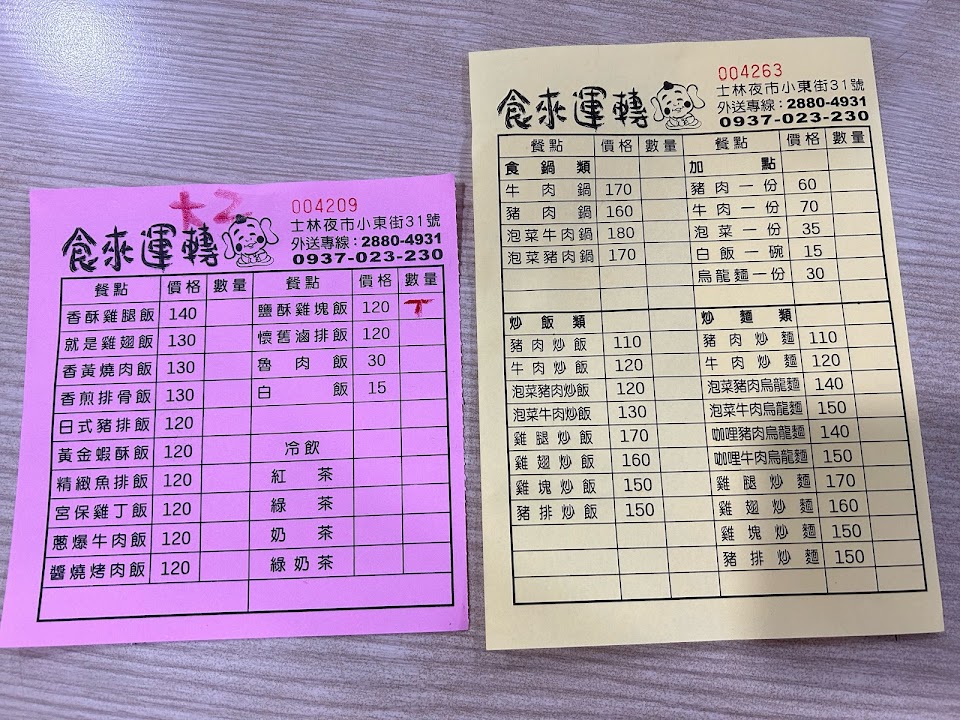 大2
004209
食來運轉
士林夜市小東街31號
外送專線：2880-4931
0937-023-230
餐點 價格 數量 餐點 價格 數量
香酥雞腿飯 140 鹽酥雞塊飯 120 T
就是雞翅飯 130 懷舊滷排飯 120
香黃燒肉飯 130 魯肉飯 30
香煎排骨飯 130 白飯 15
日式豬排飯 120
黃金蝦酥飯 120 冷飲
精緻魚排飯 120 紅茶
宮保雞丁飯 120 綠茶
蔥爆牛肉飯 120 奶茶
醬燒烤肉飯 120 綠奶茶
004263
食來運轉
士林夜市小東街31號
外送專線：2880-4931
0937-023-230
餐點 價格 數量 餐點 價格 數量
食鍋類 加點
牛肉鍋 170 豬肉一份 60
豬肉鍋 160 牛肉一份 70
泡菜牛肉鍋 180 泡菜一份 35
泡菜豬肉鍋 170 白飯一碗 15
烏龍麵一份 30
炒飯類 炒麵類
豬肉炒飯 110 豬肉炒麵 110
牛肉炒飯 120 牛肉炒麵 120
泡菜豬肉炒飯 120 泡菜豬肉烏龍麵 140
泡菜牛肉炒飯 130 泡菜牛肉烏龍麵 150
雞腿炒飯 170 咖哩豬肉烏龍麵 140
雞翅炒飯 160 咖哩牛肉烏龍麵 150
雞塊炒飯 150 雞腿炒麵 170
豬排炒飯 150 雞翅炒麵 160
雞塊炒麵 150
豬排炒麵 150